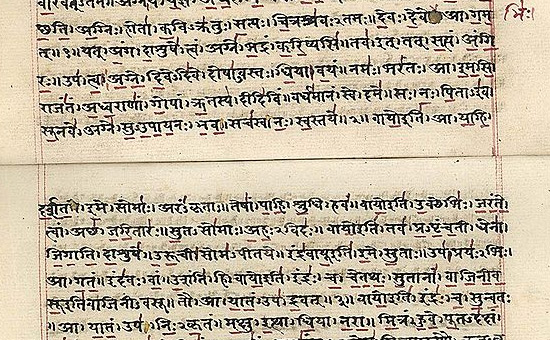 अग्निः। होता। कविक्रतुः। सत्यः। चित्रश्रवःतमः॥ देवः। आ। गम
भिः।
यत्। अंग। दाशुषे। त्वं। अग्ने। भद्रं। करिष्यसि॥ तव। इत्। तत्। सत्यं। अंगि
रः॥ उप। त्वा। अग्ने। दिवेदिवे। दोषावस्तः। धिया। वयं॥ नमः। भरंतः। आ। इमसि॥
राजंतं। अध्वराणां। गोपां। ऋतस्य। दीदिविं॥ वर्धमानं। स्वे। दमे॥ सः। नः। पिताइव।
सूनवे। अग्ने। सुउपायनः। भव॥ सचस्व। नः। स्वस्तये॥२॥ वायो इति। आ। याहि।
दर्शत। इमे। सोमाः। अरंकृताः॥ तेषां। पाहि। श्रुधि। हवं॥ वायो इति। उक्थेभिः। जरंते।
त्वां। अच्छ। जरितारः॥ सुतसोमाः। अहःविदः॥ वायो इति। तव। प्रपृंचती। धेना।
जिगाति। दाशुषे॥ उरूची। सोमपीतये॥ इंद्रवायू इति। इमे। सुताः। उप। प्रयःभिः।
आ। गतं॥ इंदवः। वां। उशंति। हि॥ वायो इति। इंद्रः। च। चेतथः। सुतानां। वाजिनीव
सू इति वाजिनीवसू॥ तौ। आ। यातं। उप। द्रवत्॥३॥ वायो इति। इंद्रः। च। सुन्वतः
॥ आ। यातं। उप। निःकृतं॥ मक्षु। इत्था। धिया। नरा॥ मित्रं। हुवे। पूतदक्षं